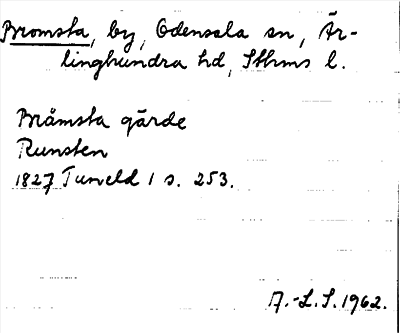 Bromsta, by, Odensala sn, Är-
linghundra hd, Sthms l.
Brämsta gärde
Runsten
1827 Tuneld 1 s. 253.
A.-L. S. 1962.